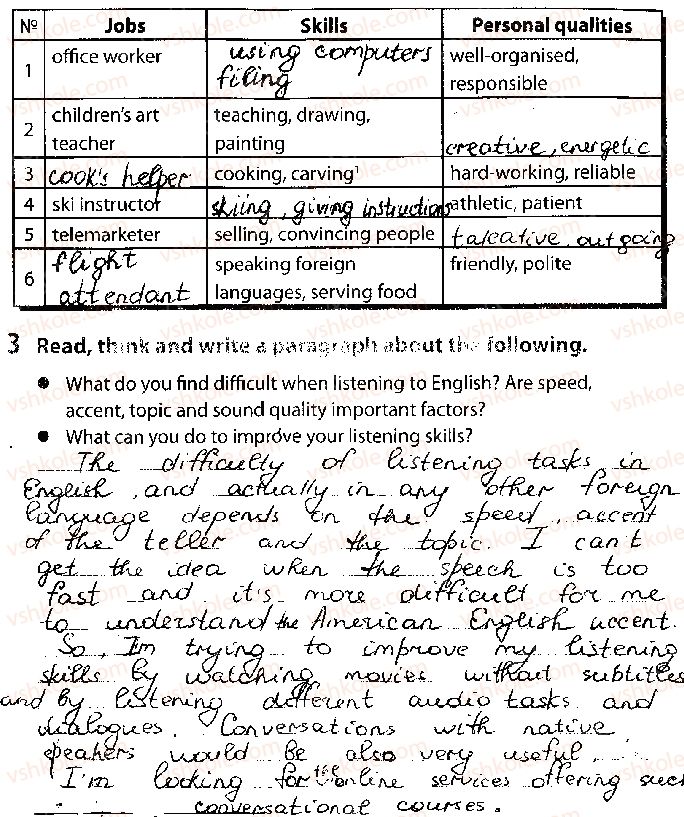 № Jobs Skills Personal qualities
1 office worker using computers filing well-organised, responsible
2 children's art teacher teaching, drawing, painting creative, energetic
3 cook's helper cooking, carving¹ hard-working, reliable
4 ski instructor skiing, giving instructions athletic, patient
5 telemarketer selling, convincing people talcative, outgoing
6 flight attendant speaking foreign languages, serving food friendly, polite
3 Read, think and write a paragraph about the following.
● What do you find difficult when listening to English? Are speed,
accent, topic and sound quality important factors?
● What can you do to improve your listening skills?
The difficulty of listening tasks in
English, and actually in any other foreign
language depends on the speed, accent
of the teller and the topic. I can't
get the idea when the speech is too
fast and it's more difficult for me
to understand the American English accent.
So, I'm trying to improve my listening
skills by watching movies without subtitles
and by listening different audio tasks and
dialogues. Conversations with native
speakers would be also very useful.
I'm looking for the online services offering such
conversational courses.
vshkole.com